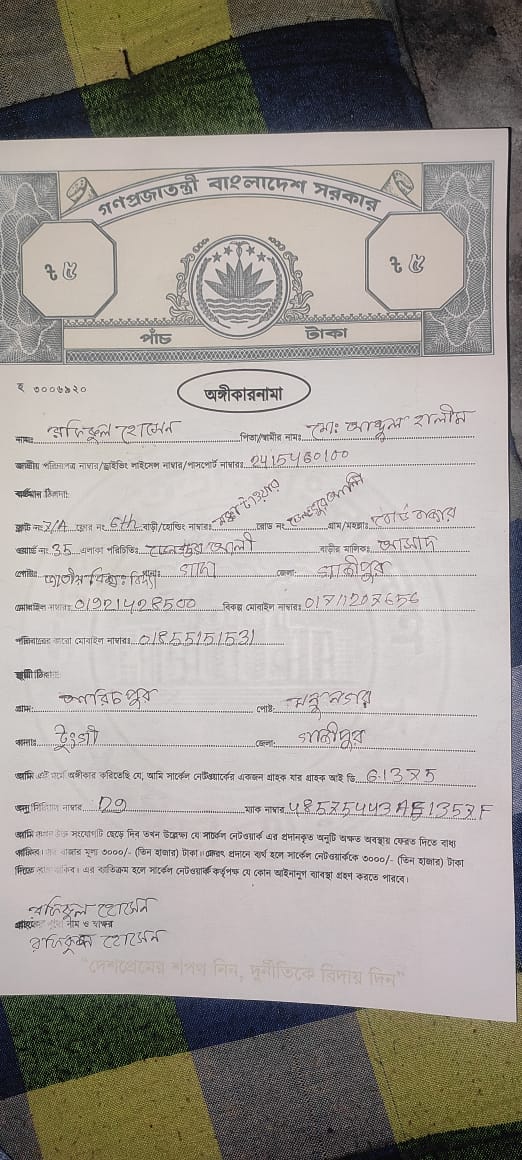 গণপ্রজাতন্ত্রী বাংলাদেশ সরকার
৳ ৫ ৳ ৫
পাঁচ টাকা
অঙ্গীকারনামা
নামঃ রফিকুল হোসেন পিতা/স্বামীর নামঃ মোঃ আব্দুল হালীম
জাতীয় পরিচয়পত্র নাম্বার/ড্রাইভিং লাইসেন্স নাম্বার/পাসপোর্ট নাম্বারঃ 2415460100
বর্তমান ঠিকানা:
ফ্লাট নং 7/A ফ্লোর নং 6th বাড়ী/হোল্ডিং নাম্বারঃ মক্কা টাওয়ার রোড নং গ্রাম/মহল্লাঃ বোর্ড বাজার
ওয়ার্ড নং 35 এলাকা পরিচিতিঃ বাড়ীর মালিকঃ আজাদ
পোষ্টঃ জাতীয় বিশ্বঃ বিদ্যাঃ থানাঃ গাছা জেলাঃ গাজীপুর
মোবাইল নাম্বারঃ 01921428500 বিকল্প মোবাইল নাম্বারঃ 01711207656
পরিবারের কারো মোবাইল নাম্বারঃ 01855151531
স্থায়ী ঠিকানা:
গ্রাম: আরিচপুর পোষ্ট: মন্নুনগর
থানাঃ টংগী জেলা: গাজীপুর
আমি এই মর্মে অঙ্গীকার করিতেছি যে, আমি সার্কেল নেটওয়ার্কের একজন গ্রাহক যার গ্রাহক আই ডি 61375
অনু সিরিয়াল নাম্বার D9 ম্যাক নাম্বার 48575443AE51357F
আমি যখন উক্ত সংযোগটি ছেড়ে দিব তখন উল্লেখ্য যে সার্কেল নেটওয়ার্ক এর প্রদানকৃত অনুটি অক্ষত অবস্থায় ফেরত দিতে বাধ্য
থাকিব। যার বাজার মূল্য ৩০০০/- (তিন হাজার) টাকা। ফেরৎ প্রদানে ব্যর্থ হলে সার্কেল নেটওয়ার্ককে ৩০০০/- (তিন হাজার) টাকা
দিতে বাধ্য থাকিব। এর ব্যতিক্রম হলে সার্কেল নেটওয়ার্ক কর্তৃপক্ষ যে কোন আইনানুগ ব্যবস্থা গ্রহণ করতে পারবে।
রফিকুল হোসেন
গ্রাহকের পুরো নাম ও স্বাক্ষর
রফিকুল হোসেন
"দেশপ্রেমের শপথ নিন, দুর্নীতিকে বিদায় দিন"